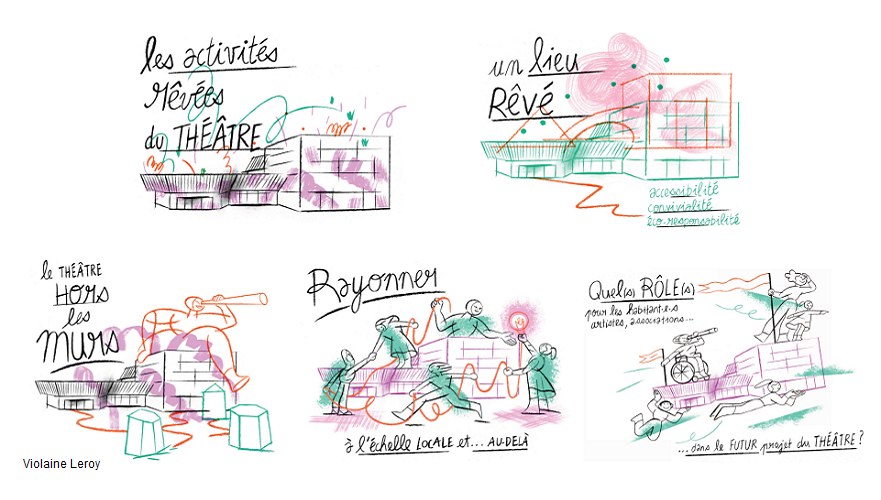 les activités
rêvées
du THÉÂTRE
un lieu
Rêvé
accessibilité
convivialité
éco-responsabilité
le THÉÂTRE
HORS
les
murs
Rayonner
à l'échelle LOCALE et... AU-DELÀ
Quel(s) RÔLE(s)
pour les habitant·e·s
artistes, associations...
...dans le FUTUR projet du THÉÂTRE ?
Violaine Leroy